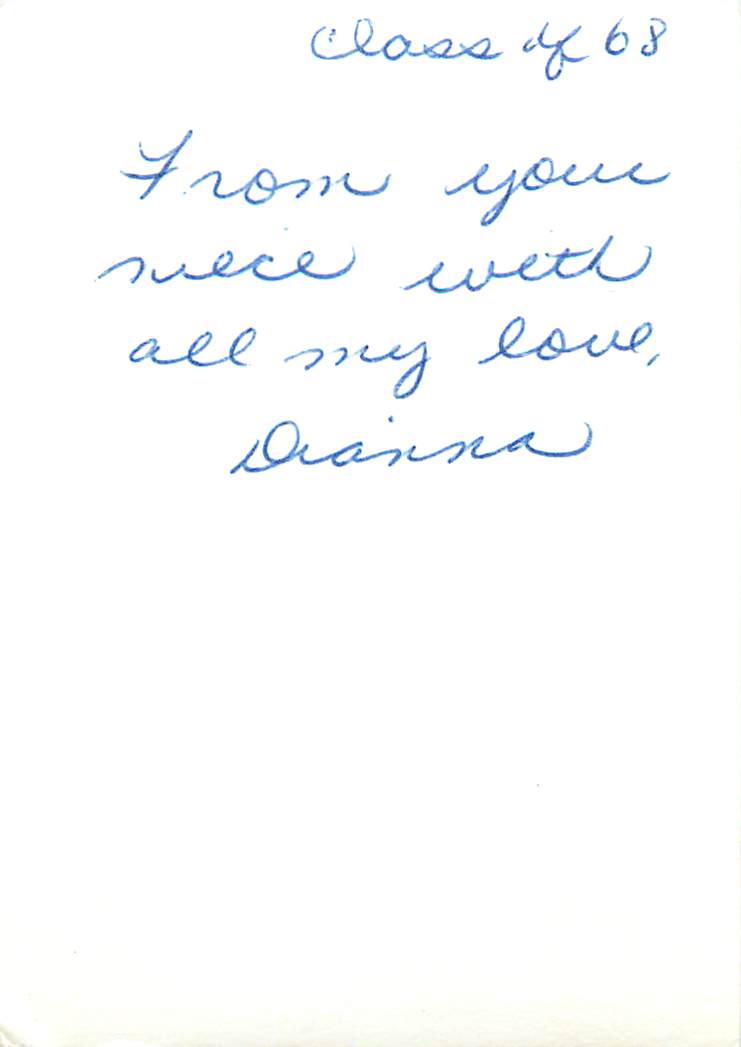 Class of 68
From your
niece with
all my love,
Dianna